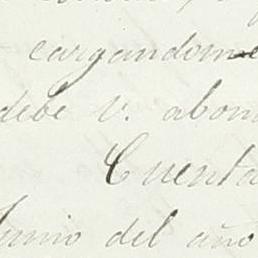 cargandome
debe V. abon
Cuenta
Junio del año